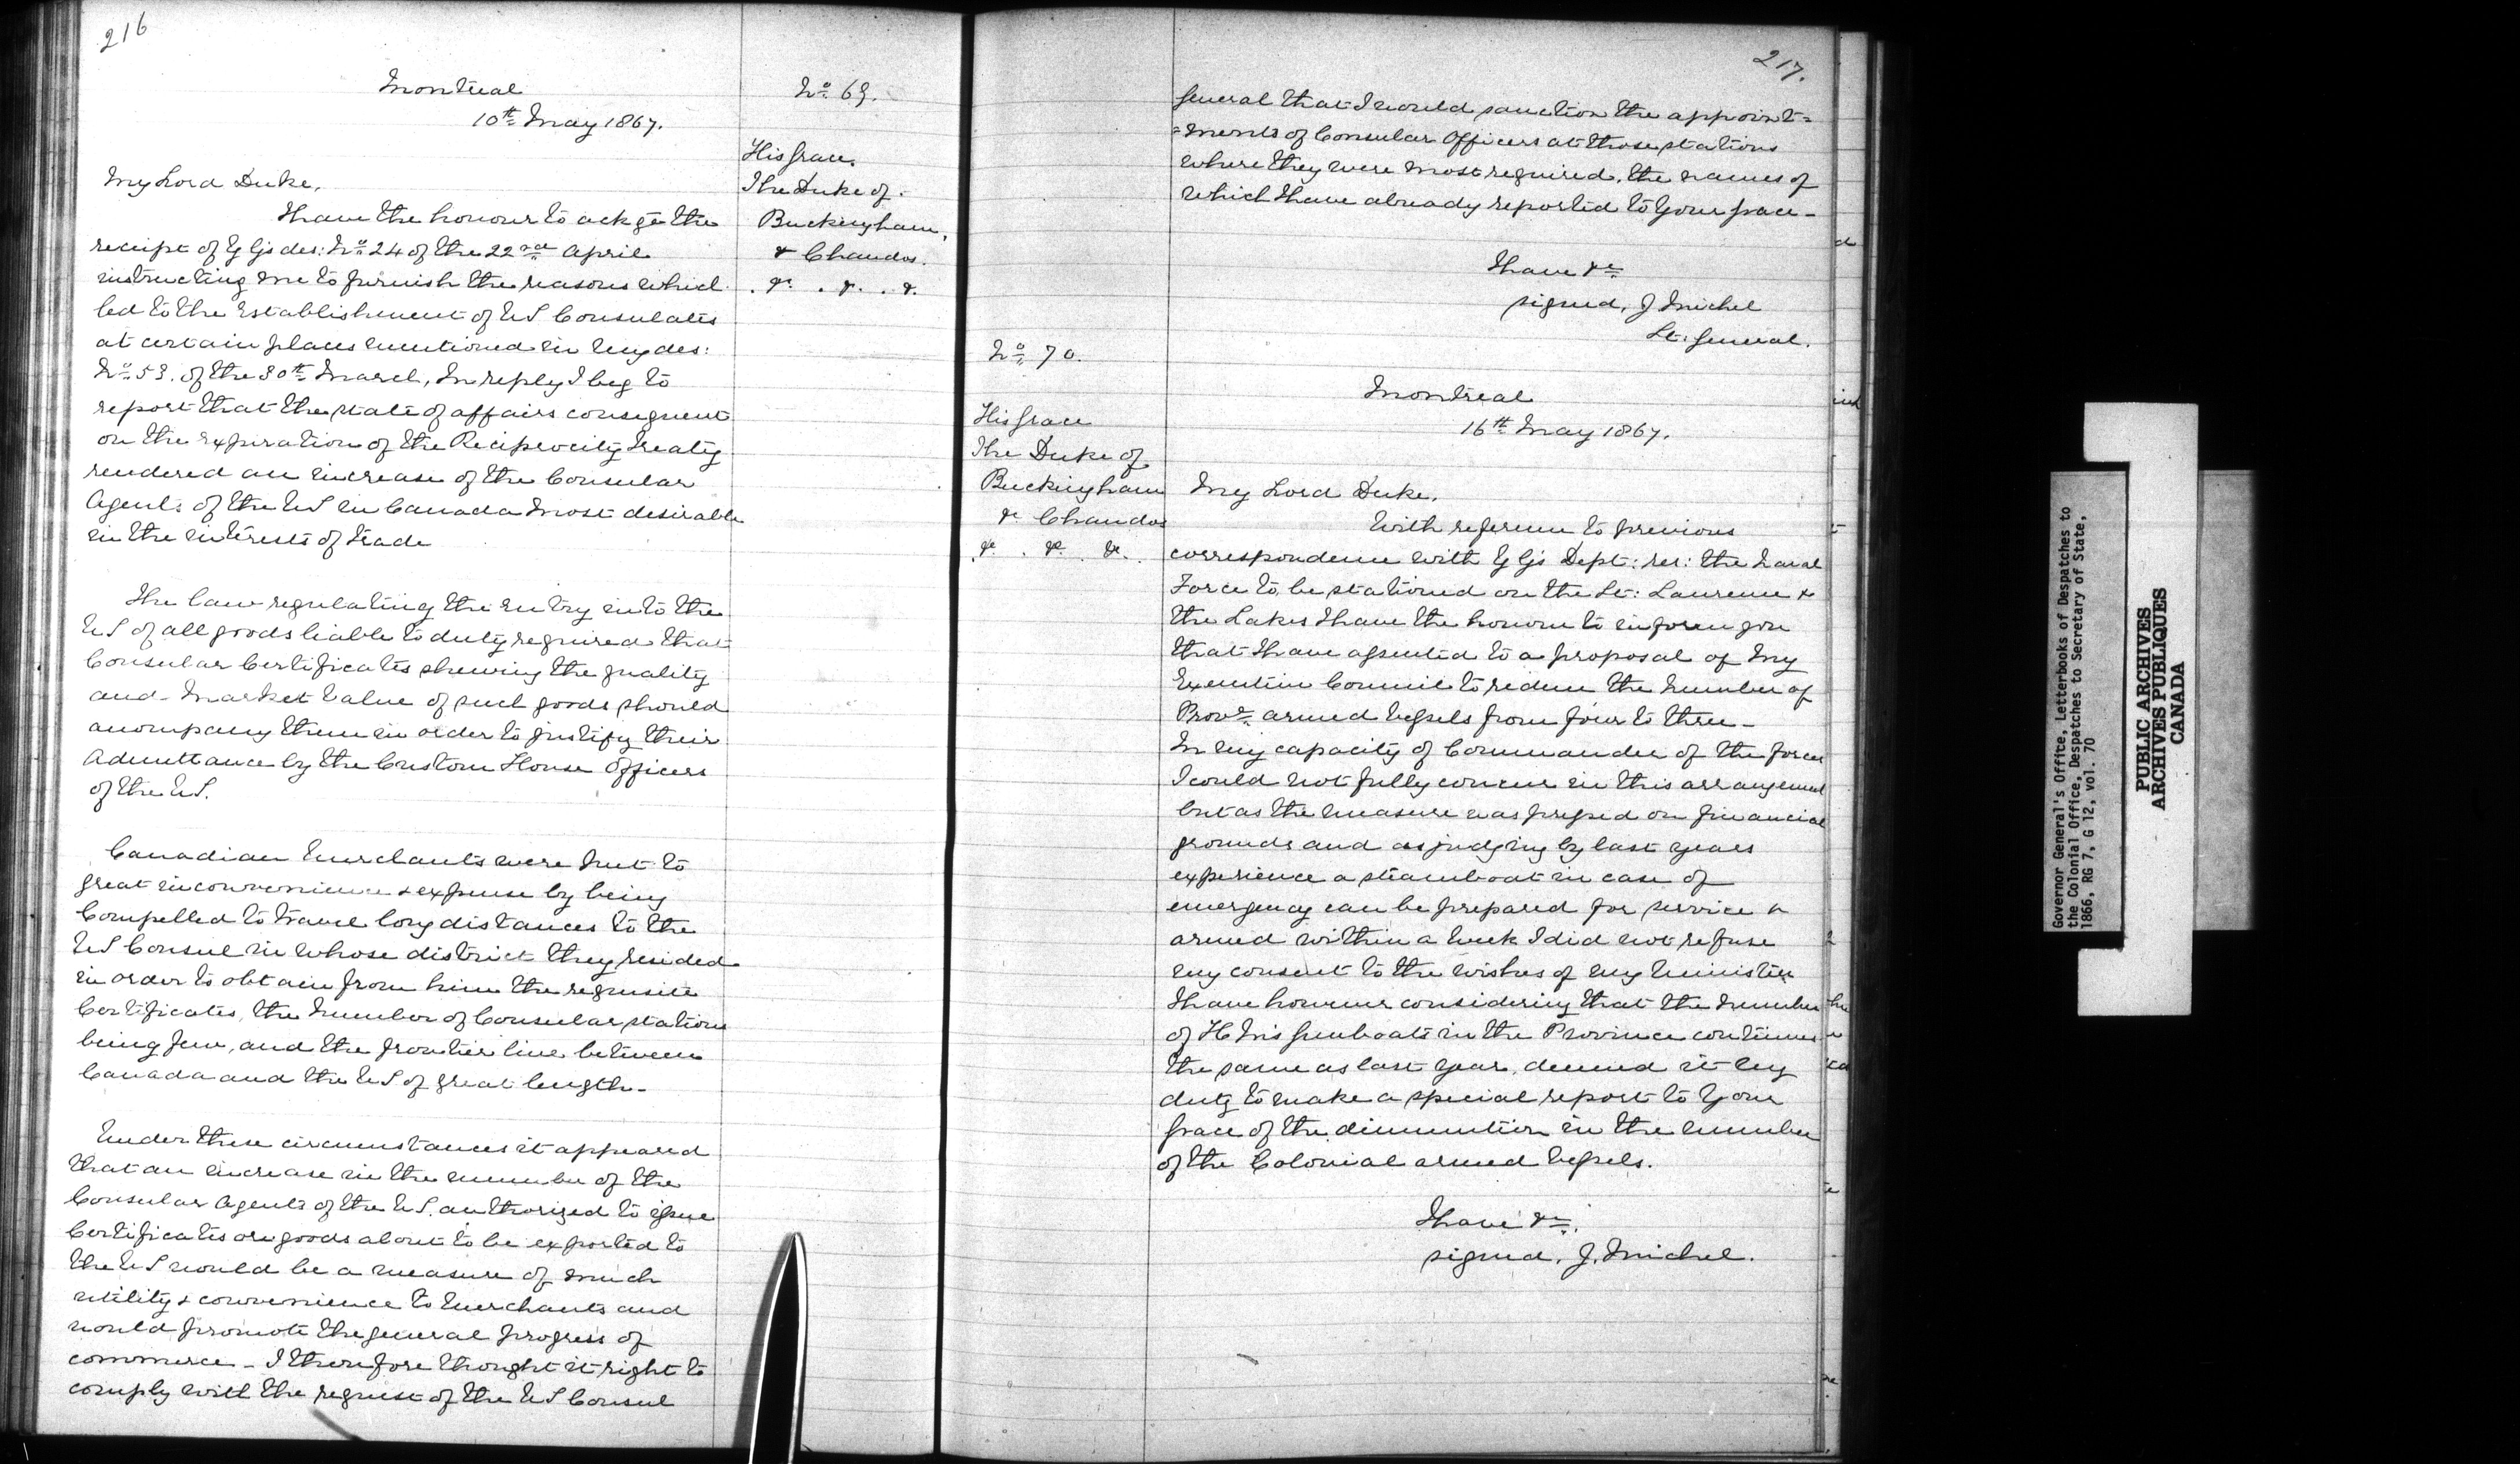 216
Montreal
10th May 1867.
No 69.
His Grace
The Duke of
Buckingham,
& Chandos.
. &. . &. . &.
My Lord Duke,
I have the honour to ackge the
receipt of Y G's des: No 24 of the 22nd April
instructing me to furnish the reasons which
led to the Establishment of US Consulates
at certain places mentioned in my des:
No 53. of the 30th March, In reply I beg to
report that the state of affairs consequent
on the expiration of the Reciprocity Treaty
rendered an increase of the Consular
Agents of the US in Canada most desirable
in the interests of trade
The law regulating the entry into the
US of all goods liable to duty required that
Consular Certificates shewing the quality
and market value of such goods should
accompany them in order to justify their
Admittance by the Custom House Officers
of the US.
Canadian Merchants were put to
great inconvenience & expense by being
Compelled to travel long distances to the
US Consul in whose district they resided
in order to obtain from him the requisite
Certificates, the number of Consular stations
being few, and the frontier line between
Canada and the US of great length -
Under these circumstances it appeared
that an increase in the number of the
Consular Agents of the US. authorized to issue
Certificates on goods about to be exported to
the US would be a measure of much
utility & convenience to Merchants and
would promote the general progress of
commerce - I therefore thought it right to
comply with the request of the US Consul
217.
General that I would sanction the appoint=
=ments of Consular Officers at those stations
where they were most required, the names of
which I have already reported to Your Grace -
I have &c
signed, J Michel
Lt. General.
No 70.
His Grace
The Duke of
Buckingham
& Chandos
&. . &. . &.
Montreal
16th May 1867.
My Lord Duke,
With reference to previous
correspondence with Y G's Dept: res: the Naval
Force to be stationed on the St: Laurence &
the Lakes I have the honour to inform you
that I have assented to a proposal of my
Executive Council to reduce the number of
Provl armed vessels from four to three -
In my capacity of Commander of the Forces
I could not fully concur in this arrangement
but as the measure was pressed on financial
grounds and as judging by last years
experience a steamboat in case of
emergency can be prepared for service &
armed within a week I did not refuse
my consent to the wishes of my Ministers
I have however considering that the number
of H M's Gunboats in the Province continues
the same as last year, deemed it my
duty to make a special report to Your
Grace of the diminution in the number
of the Colonial armed vessels.
I have &c.
signed, J. Michel.
Governor General's Office, Letterbooks of Despatches to
the Colonial Office, Despatches to Secretary of State,
1866, RG 7, G 12, vol. 70
PUBLIC ARCHIVES
ARCHIVES PUBLIQUES
CANADA